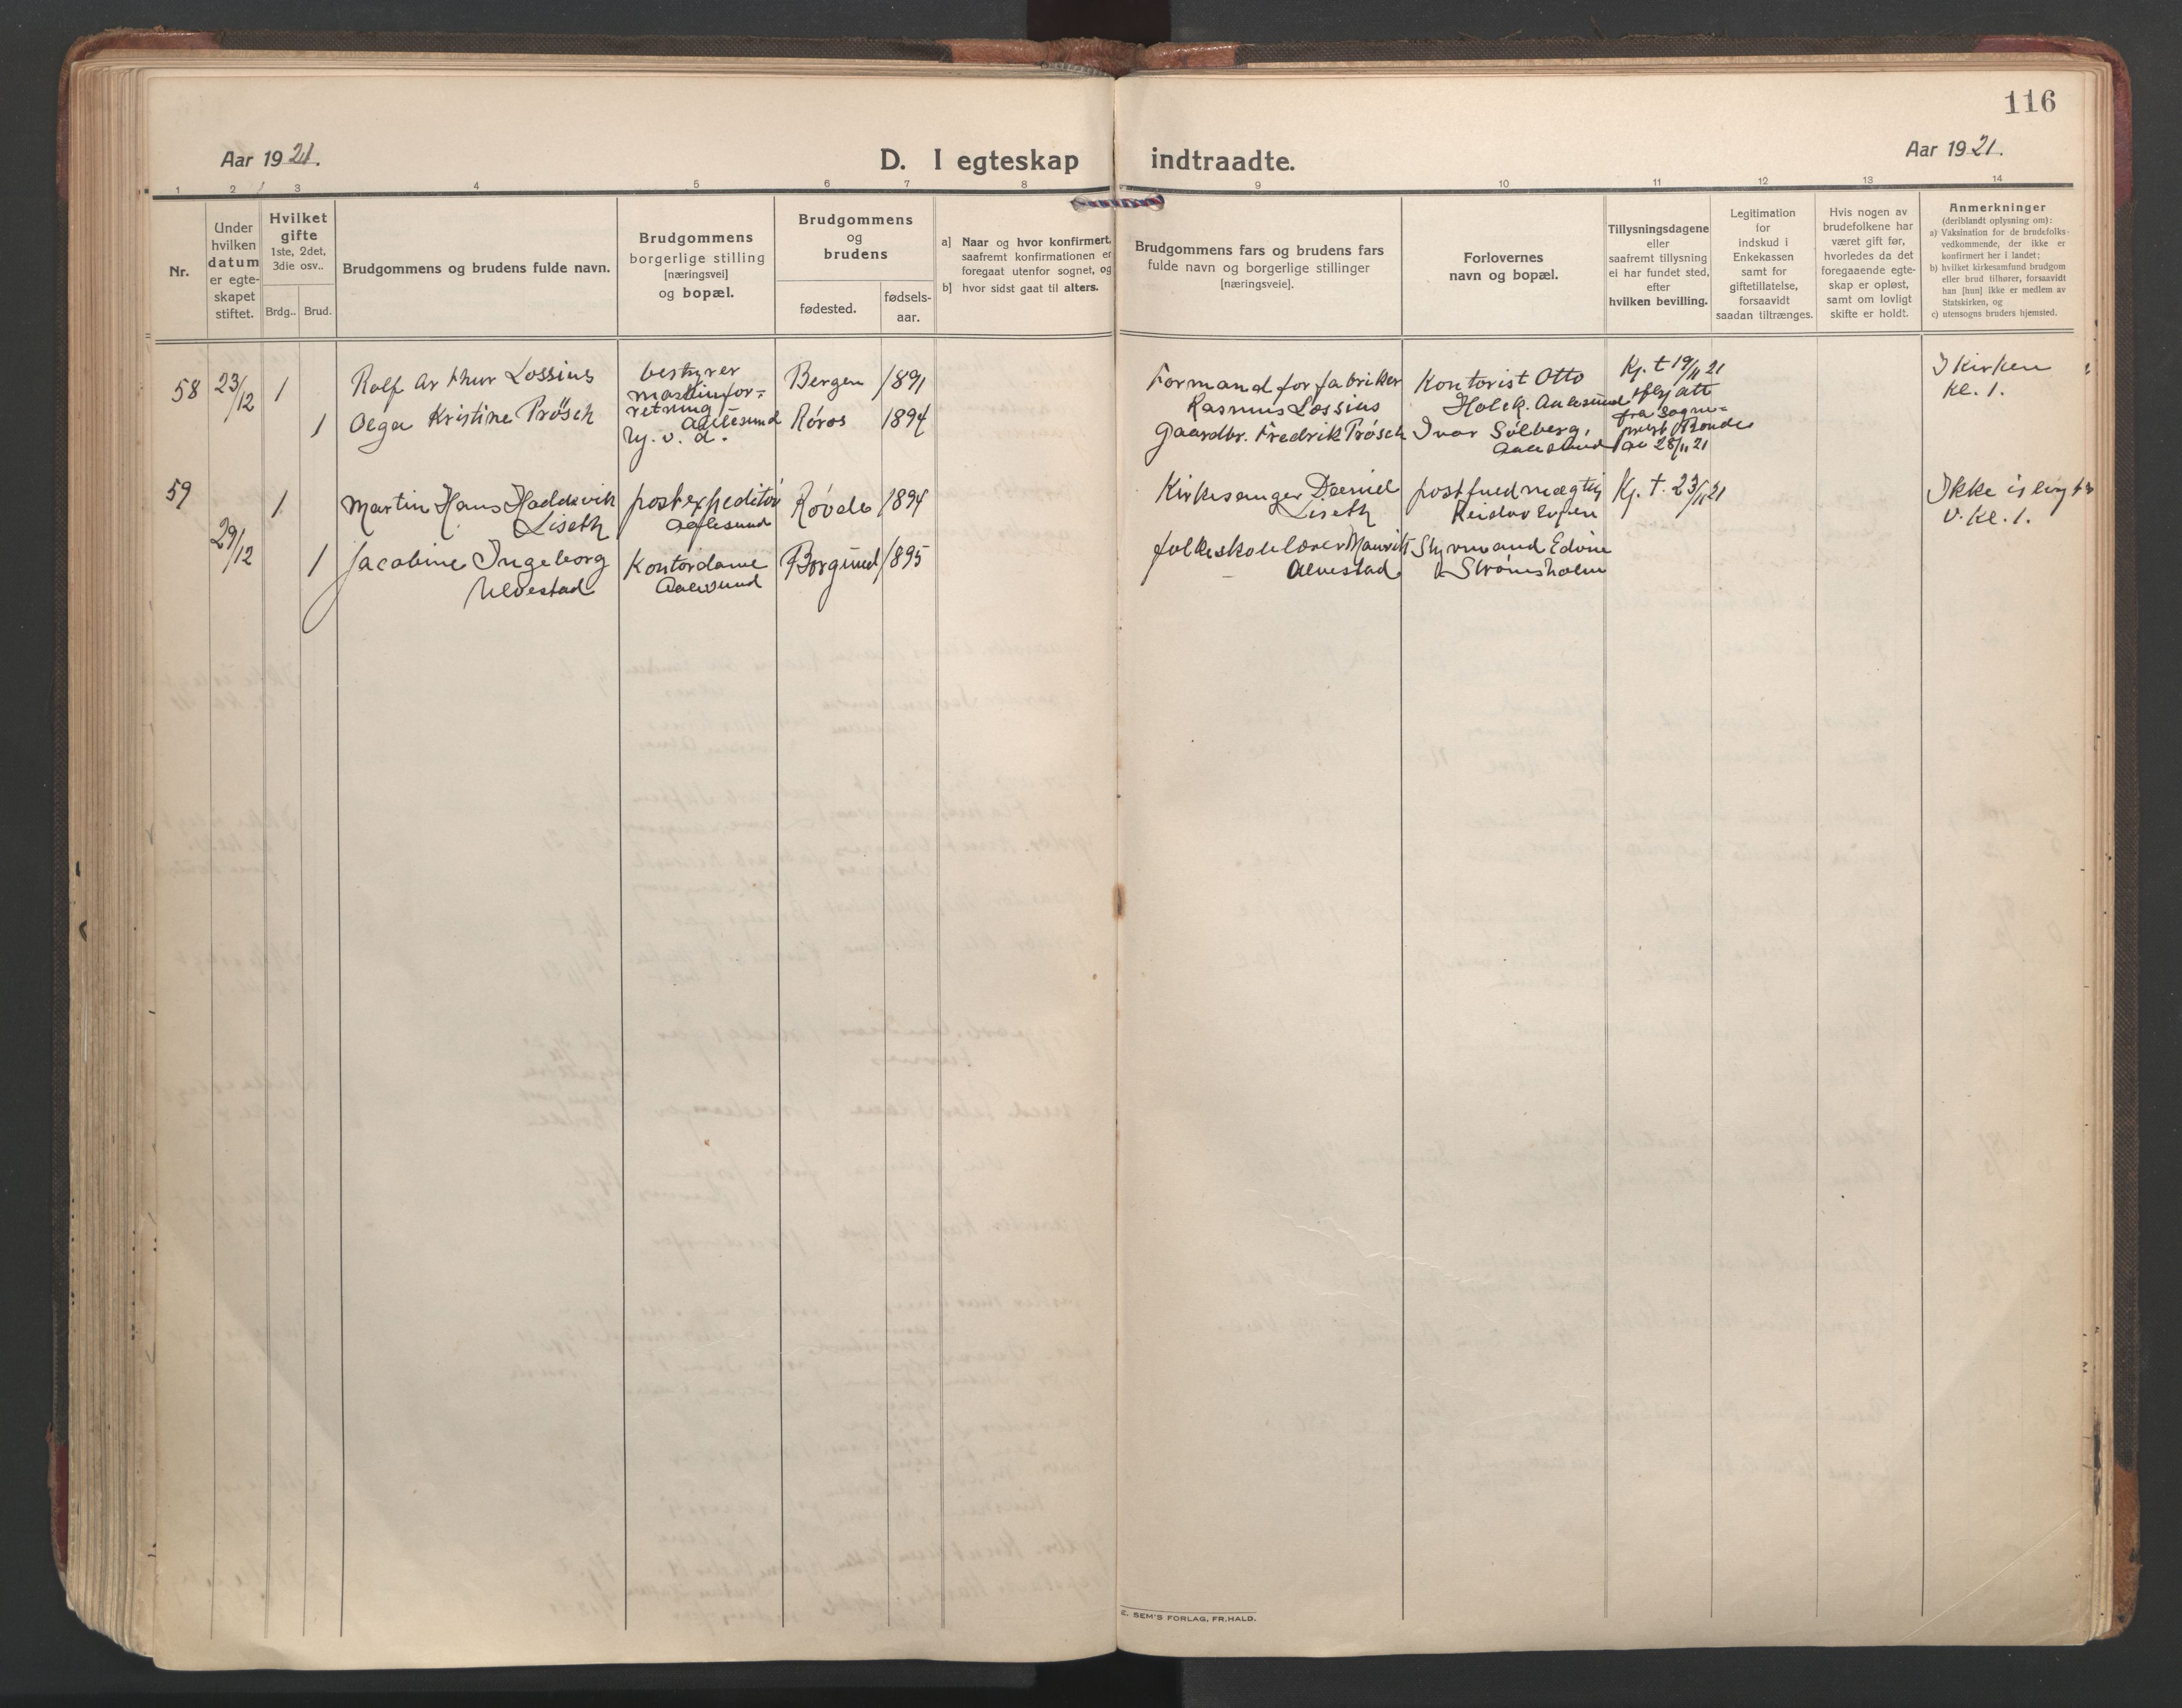 116
Aar 1921.
D. I egteskap indtraadte.
Aar 1921.
1 2 3 4 5 6 7 8 9 10 11 12 13 14
Nr.
Under
hvilken
datum
er egte-
skapet
stiftet.
Hvilket
gifte
1ste, 2det,
3die osv..
Brdg.. Brud.
Brudgommens og brudens fulde navn.
Brudgommens
borgerlige stilling
[næringsvei]
og bopæl.
Brudgommens
og
brudens
fødested.
fødsels-
aar.
a] Naar og hvor konfirmert,
saafremt konfirmationen er
foregaat utenfor sognet, og
b] hvor sidst gaat til alters.
Brudgommens fars og brudens fars
fulde navn og borgerlige stillinger
[næringsveie].
Forlovernes
navn og bopæl.
Tillysningsdagene
eller
saafremt tillysning
ei har fundet sted,
efter
hvilken bevilling.
Legitimation
for
indskud i
Enkekassen
samt for
giftetillatelse,
forsaavidt
saadan tiltrænges.
Hvis nogen av
brudefolkene har
været gift før,
hvorledes da det
foregaaende egte-
skap er opløst,
samt om lovligt
skifte er holdt.
Anmerkninger
(deriblandt oplysning om):
a) Vaksination for de brudefolks-
vedkommende, der ikke er
konfirmert her i landet;
b) hvilket kirkesamfund brudgom
eller brud tilhører, forsaavidt
han [hun] ikke er medlem av
Statskirken, og
c) utensogns bruders hjemsted.
58
23/12
1
Rolf Arthur Lossius
bestyrer
maskinfor-
retning
Aalesund
Bergen
1891
Formand for fabriker
Rasmus Lossius
Kontorist Otto
Holck. Aalesund
Kj. t 19/11 21
fra sogne-
prest
28/11 21
I kirken
Kl. 1.
1
Olga Kristine Prøsch
Røros
1894
Gaardbr. Fredrik Prøsch
Ivar Solberg,
Aalesund
59
29/12
1
Martin Hans Haddevik
Liseth
postexpeditør
Aalesund
Røvde
1894
Kirkesanger Daniel
Liseth
postfuldmægtig
Kj. t. 23/11 21
Ikke
v. Kl. 1.
1
Jacobine Ingeborg
Ulvestad
Kontordame
Aalesund
Borgund
1895
folkeskolelærer Maurits
Ulvestad
Styrmand Edvin
Strømsholm
E. SEM'S FORLAG, FR.HALD.